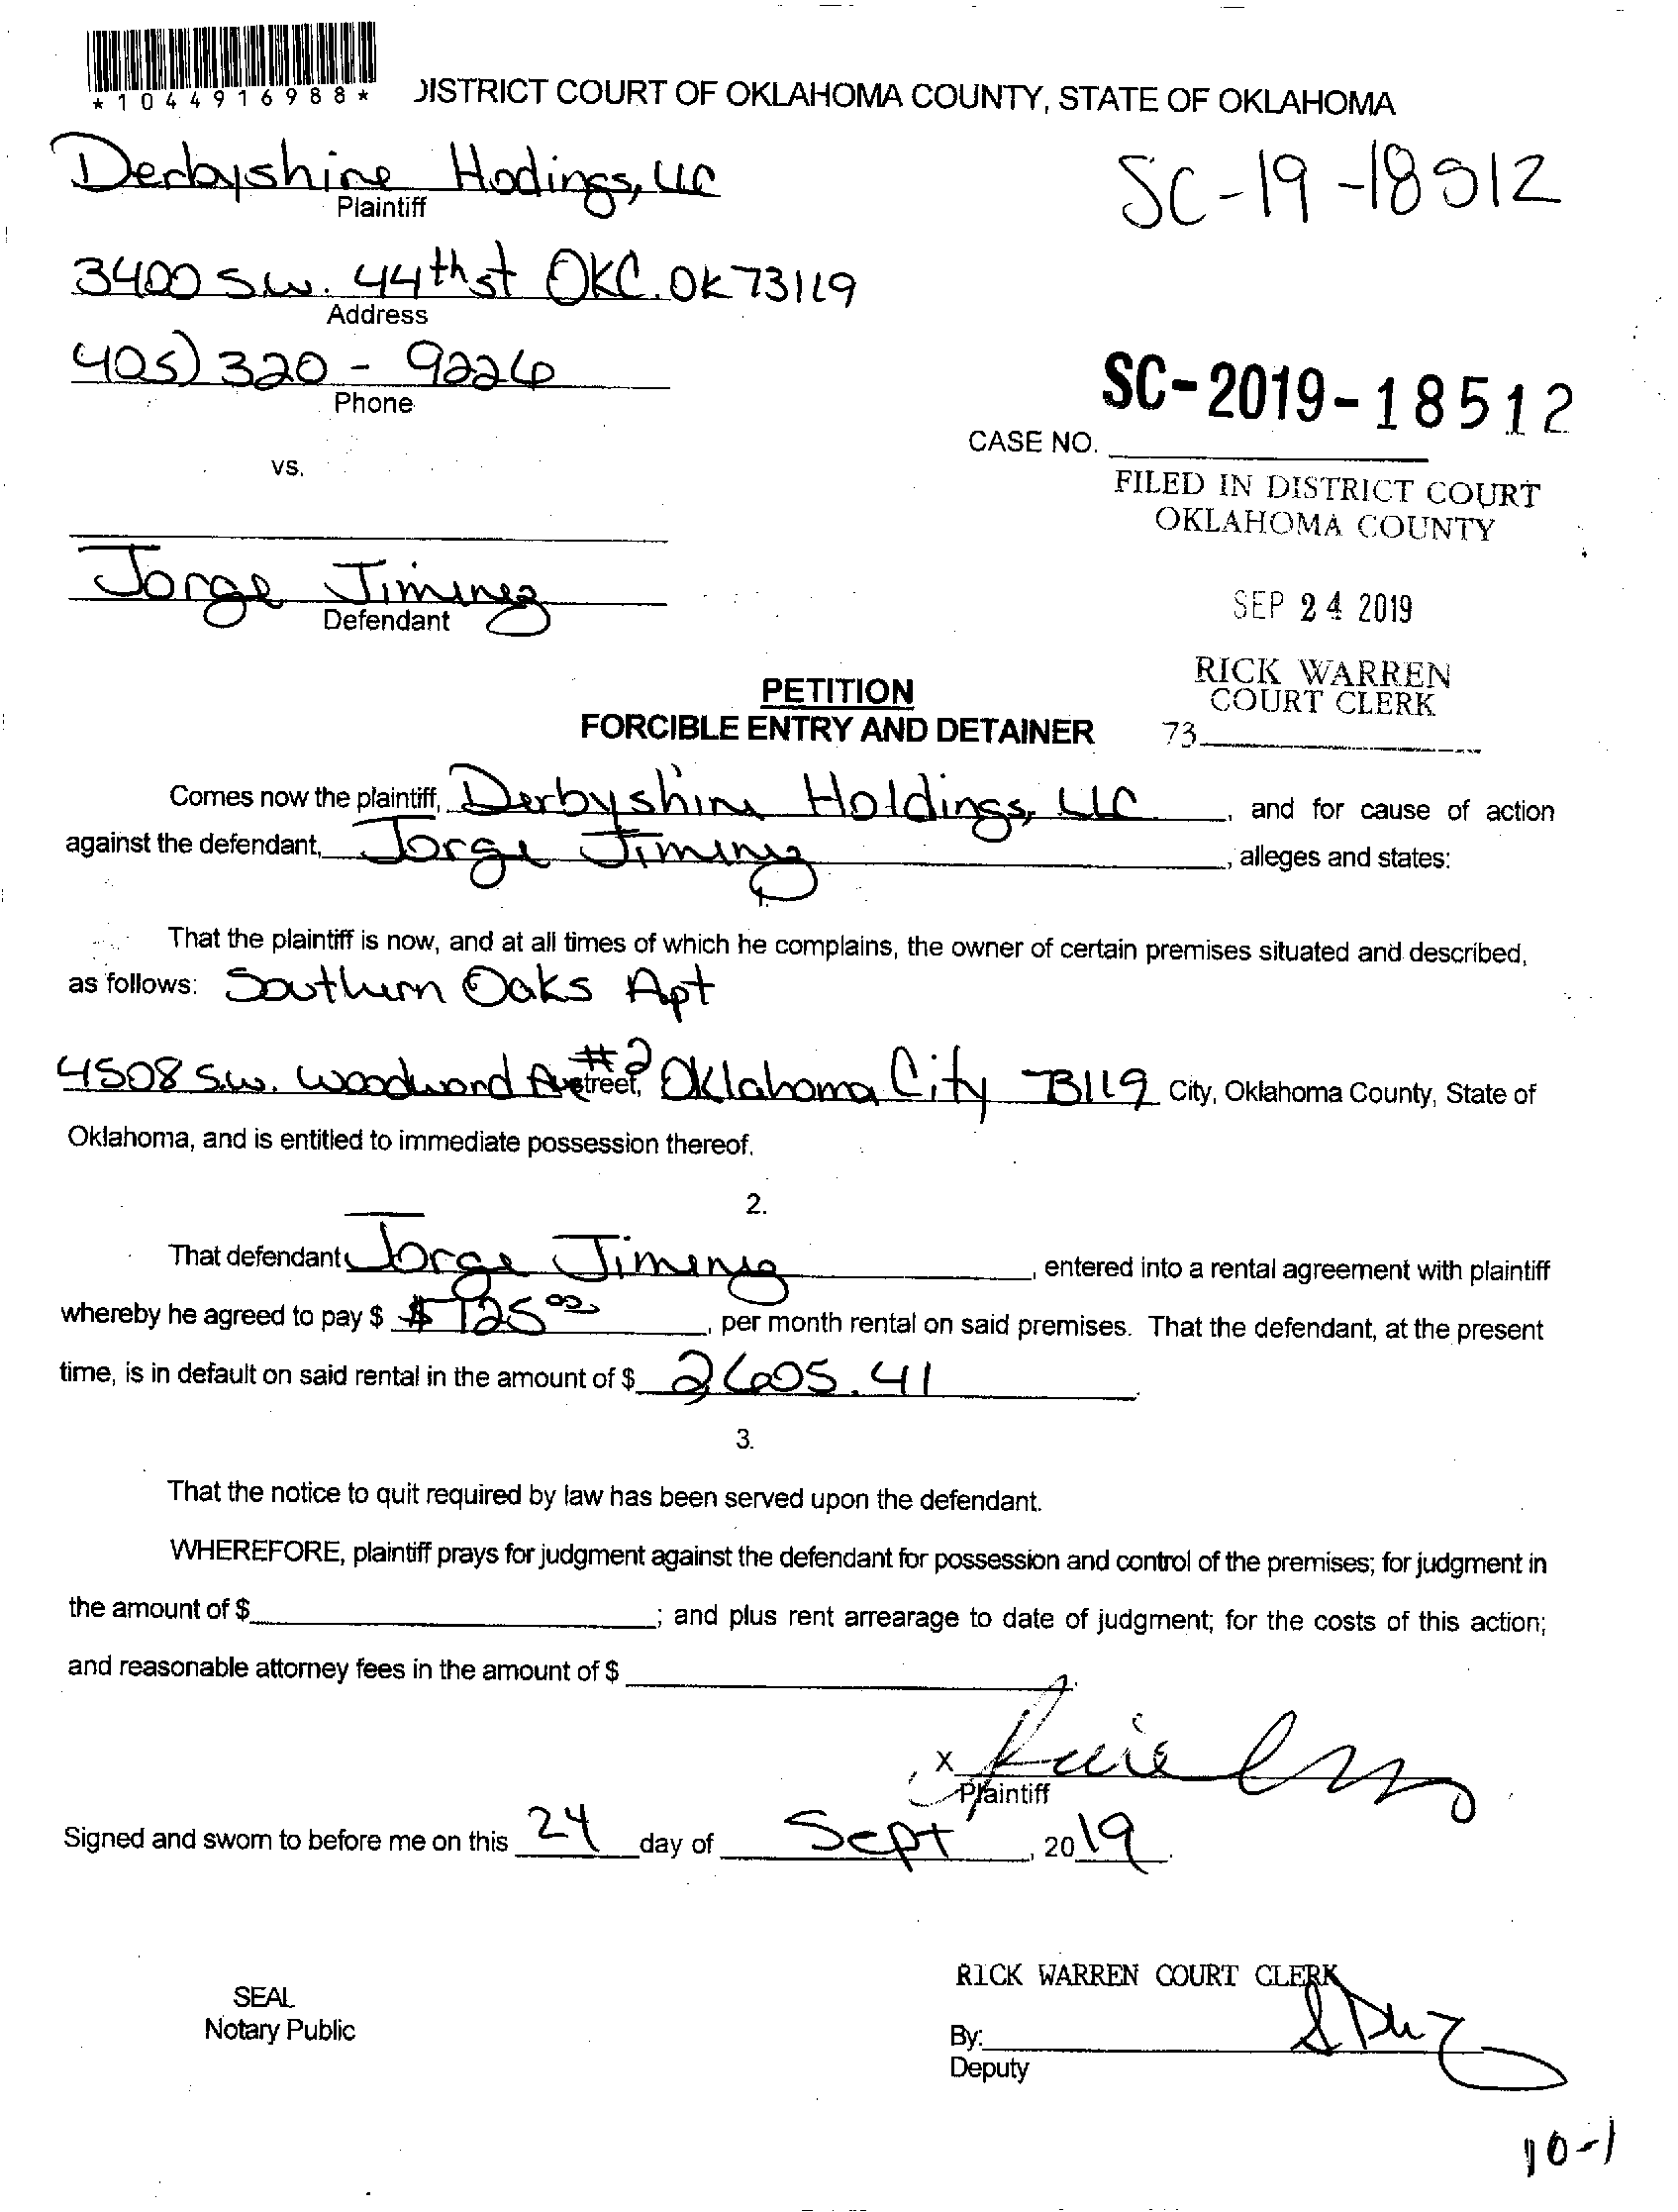 *1044916988*
DISTRICT COURT OF OKLAHOMA COUNTY, STATE OF OKLAHOMA
Derbyshire Hodings, LLC
Plaintiff
SC-19-18512
3400 S.W. 44th st OKC. OK 73119
Address
405) 320 - 9226
Phone
SC-2019-18512
CASE NO.
vs.
FILED IN DISTRICT COURT
OKLAHOMA COUNTY
Jorge Jiminez
Defendant
SEP 24 2019
RICK WARREN
COURT CLERK
73
PETITION
FORCIBLE ENTRY AND DETAINER
Comes now the plaintiff, Derbyshire Holdings, LLC, and for cause of action
against the defendant, Jorge Jimenez, alleges and states:
1.
That the plaintiff is now, and at all times of which he complains, the owner of certain premises situated and described,
as follows: Southern Oaks Apt
4508 S.W. Woodward Ave #2 street, Oklahoma City 73119 City, Oklahoma County, State of
Oklahoma, and is entitled to immediate possession thereof.
2.
That defendant Jorge Jimenez, entered into a rental agreement with plaintiff
whereby he agreed to pay $ $725.00, per month rental on said premises. That the defendant, at the present
time, is in default on said rental in the amount of $ 2605.41.
3.
That the notice to quit required by law has been served upon the defendant.
WHEREFORE, plaintiff prays for judgment against the defendant for possession and control of the premises; for judgment in
the amount of $ ; and plus rent arrearage to date of judgment; for the costs of this action;
and reasonable attorney fees in the amount of $
X
Plaintiff
Signed and sworn to before me on this 24 day of Sept, 2019.
RICK WARREN COURT CLERK
SEAL
Notary Public
By:
Deputy
10-1